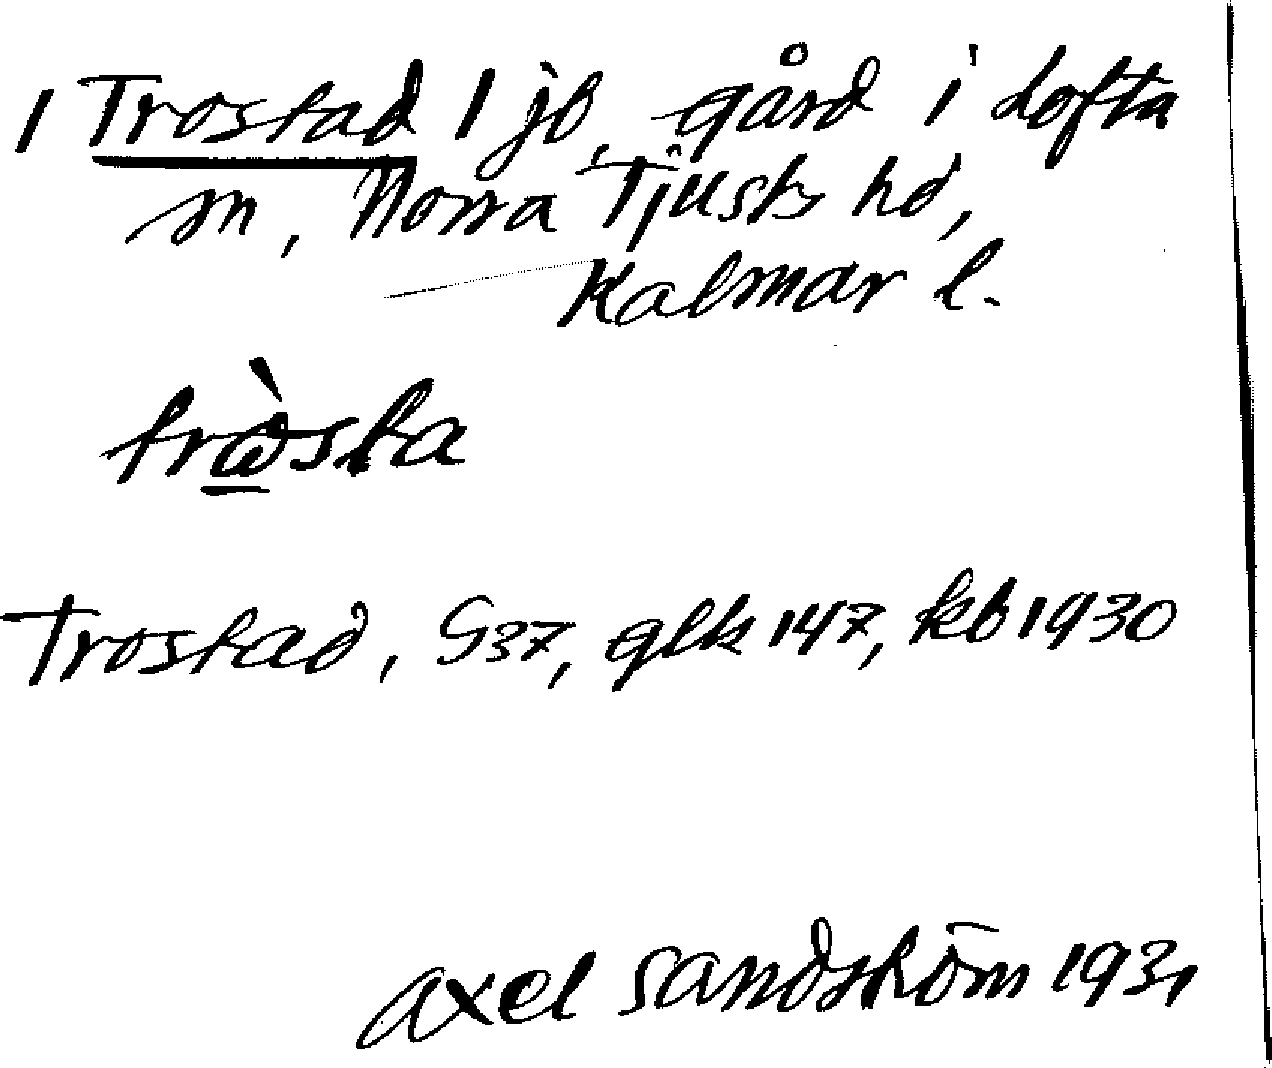 / Trostad / jb, gård i Lofta
sn, Norra Tjusts hd,
Kalmar l.
tròsta
Trostad, G37, glk 147, kb 1930
Axel Sandström 1931